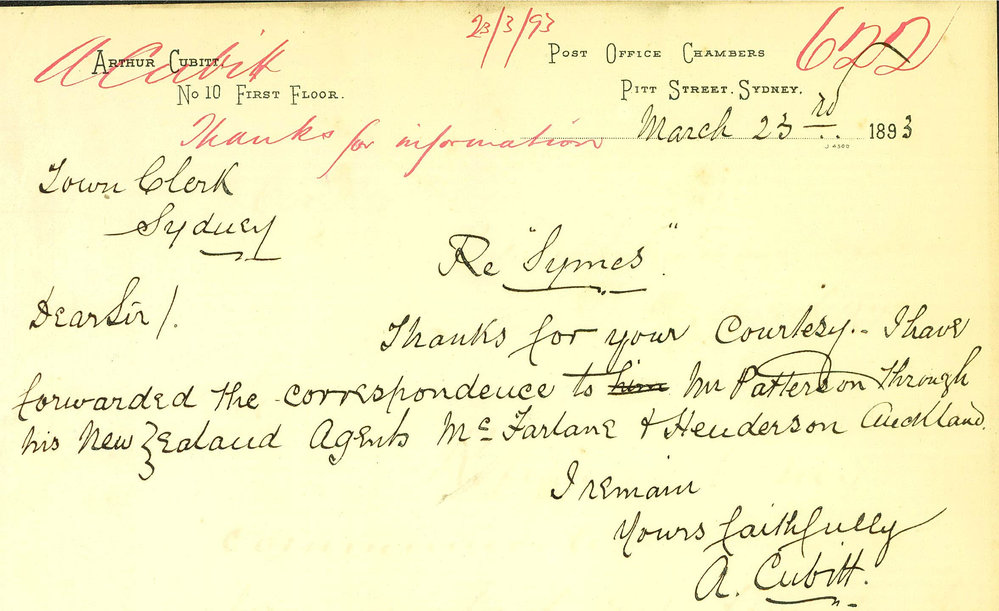 23/3/93
622
A Cubitt
ARTHUR CUBITT
No 10 FIRST FLOOR.
POST OFFICE CHAMBERS
PITT STREET. SYDNEY.
Thanks for information
March 23rd 1893
J 4500
Town Clerk
Sydney
Re "Symes".
Dear Sir/.
Thanks for your Courtesy.. I have
forwarded the correspondence to him Mr Patterson through
his New Zealand Agents Mc Farlane & Henderson Auckland.
I remain
Yours faithfully
A. Cubitt.